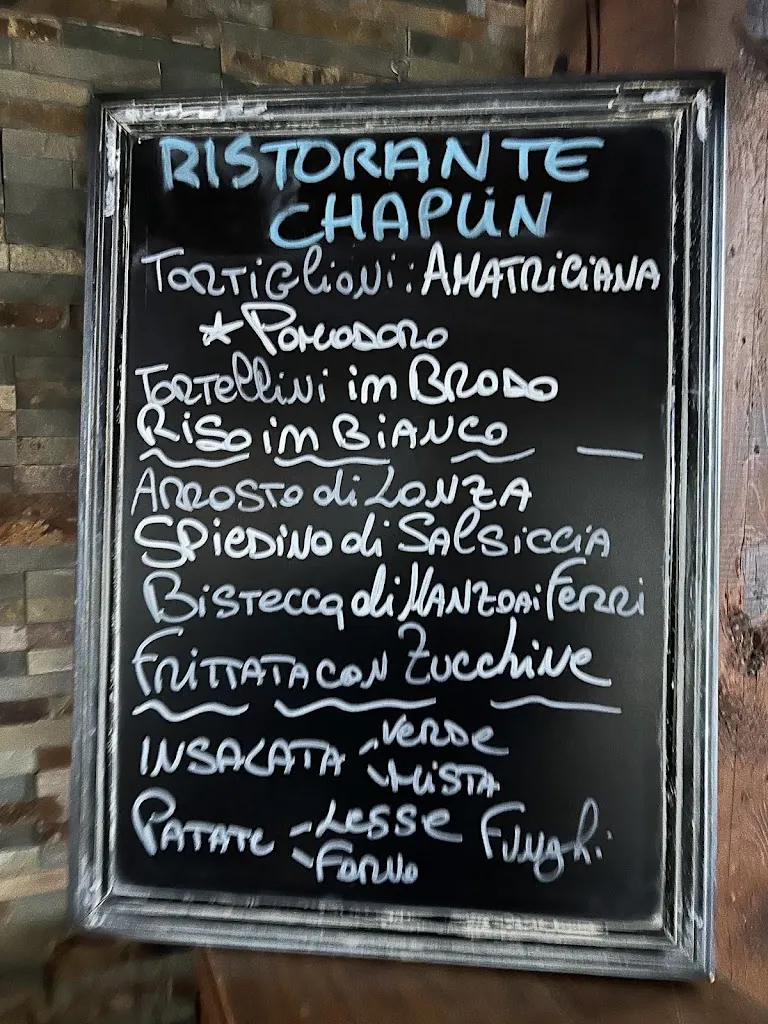 RISTORANTE
CHAPLIN
TORTIGLIONI: AMATRICIANA
* POMODORO
TORTELLINI im BRODO
RISO im BIANCO
ARROSTO di LONZA
SPIEDINO di SALSICCIA
BISTECCA di MANZO ai FERRI
FRITTATA CON ZUCCHINE
INSALATA - VERDE
- MISTA
PATATE - LESSE FUNghi
- FORNO